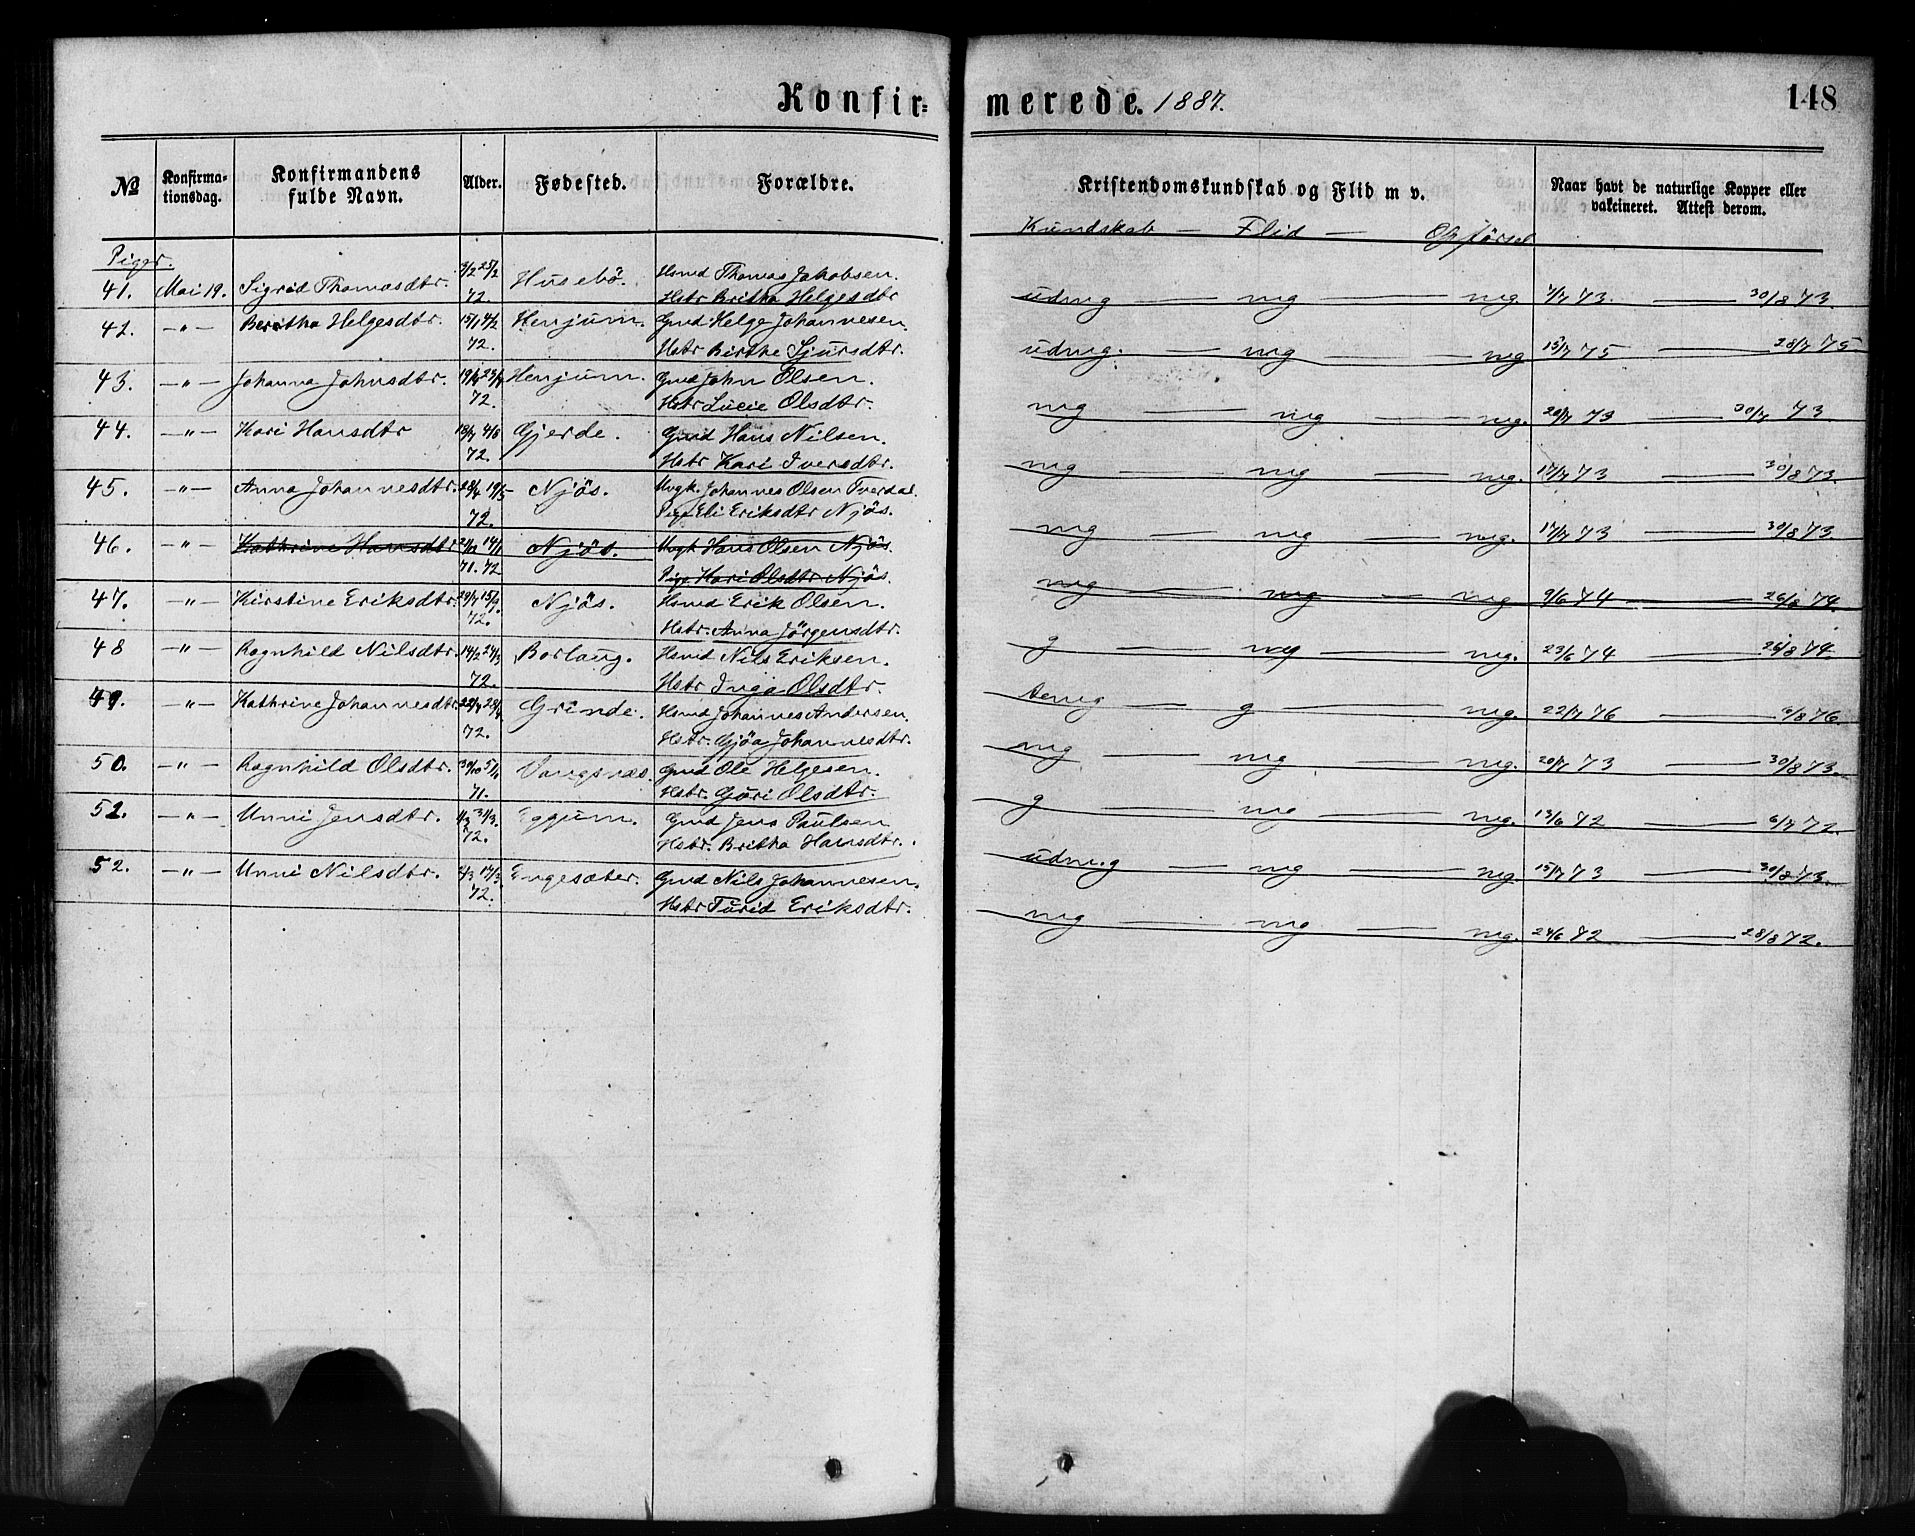 Konfir=merede. 1887. 148
№ Konfirma-tionsdag. Konfirmandens fulde Navn. Alder. Fødested. Forældre. Kristendomskundskab og Flid m v. Naar havt de naturlige Kopper eller vakcineret. Attest derom.
Kundskab — Flid — Opförsel
Piger.
41. Mai 19. Sigrid Thomasdtr. 25/2 72. Husebö. Hsmd Thomas Jakobsen. Hstr Britha Helgesdtr udmg — mg — mg 73. — 30/8 73.
42. -"- Beritha Helgesdtr. 15/1 4/2 72. Henjum. Gmd Helge Johannesen. Hstr Birthe Sjursdtr. udmg. — mg — mg 15/7 75 — 28/7 75.
43. -"- Johanna Johnsdtr. 72. Henjum. Gmd John Olsen. Hstr Lucie Olsdtr. mg — mg — mg. 20/7 73 — 30/7 73
44. -"- Kari Hansdtr 72. Gjerde. Gmd Hans Nilsen. Hstr Kari Iversdtr. mg — mg — mg. 17/7 73 — 30/8 73.
45. -"- Anna Johannesdtr. 28/4 19/5 72. Njös. Ungk. Johannes Olsen Tverdal. Pige Eli Eriksdtr Njös. mg — mg — mg. 17/7 73 — 30/8 73.
46. -"- Kathrine Hansdtr 14/1 71. 72 Njös. Ungk Hans Olsen Njös. Pige Kari Olsdtr Njös. mg — mg — mg 9/6 74 — 26/8 74.
47. -"- Kirstine Eriksdtr. 72. Njös. Hsmd Erik Olsen. Hstr. Anna Jörgensdtr. g — mg — mg. 23/6 74 — 26/8 74.
48 -"- Ragnhild Nilsdtr. 14/2 24/3 72. Borlaug. Hsmd Nils Eriksen. Hstr Inga Olsdtr. temg — g — mg. 22/7 76 — 76.
49. -"- Kathrine Johannesdtr. 72. Grinde. Hsmd Johannes Andersen. Hstr. Gjöa Johannesdtr. mg — mg — mg. 20/7 73 — 30/8 73.
50. -"- Ragnhild Olsdtr. 30/10 5/11 71. Vangsnæs. Gmd Ole Helgesen. Hstr. Göri Olsdtr. g — mg — mg. 13/6 72 — 6/7 72.
51. -"- Unni Jensdtr. 72. Eggum. Gmd Jens Paulsen Hstr. Britha Hansdtr. udm.g — mg — mg. 15/7 73 — 30/8 73.
52. -"- Unni Nilsdtr. 17/3 72. Engesæter. Gmd Nils Johannesen. Hstr Turid Eriksdtr. mg — mg — mg. 24/6 72 — 28/8 72.